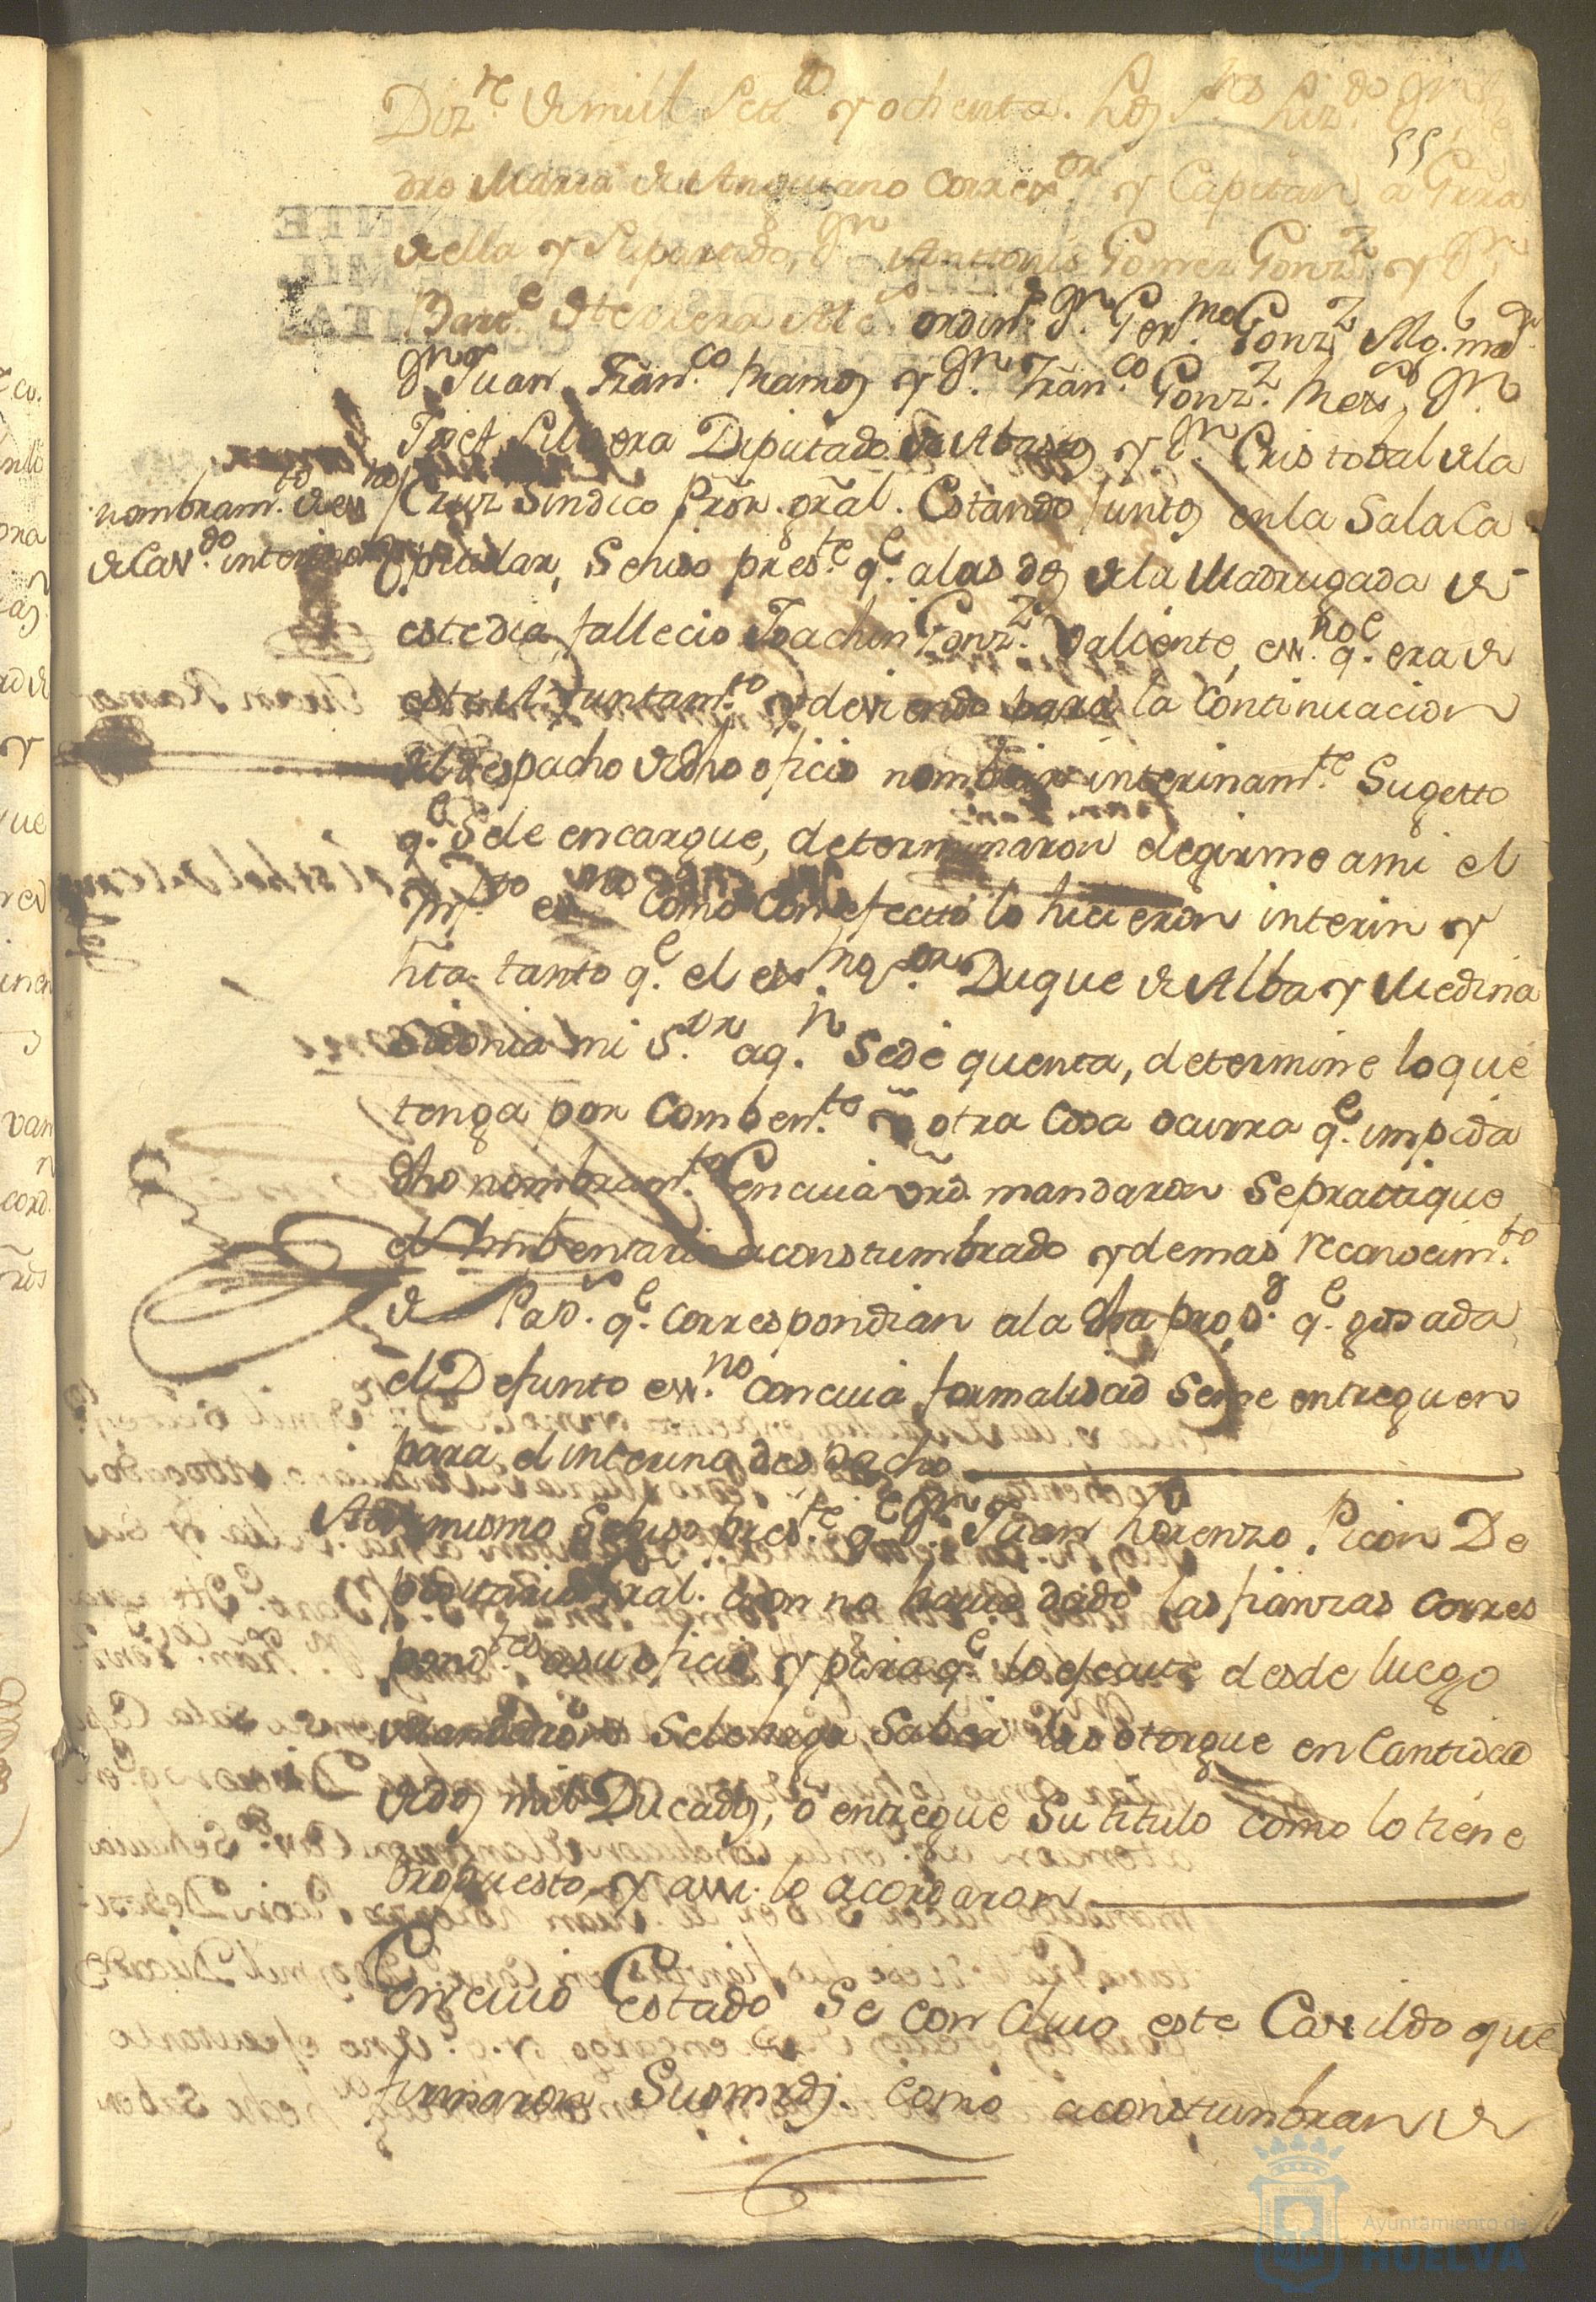 Diz.re de mill Set.os y ochenta. Los S.res Liz.do D.n
dro Maria de Anguiano Correx.or y Capitan a Grra
de ella y Su partido, D.n Antonio Gomez Gonz.z y D.n
Bart.e de ordin.s D.n Ger.mo Gonz.z Alg. m.or
D.n Juan Fran.co Ramos y D.n Fran.co Gonz.z D.n
Diputado de Abastos y D.n Cristobal de la
Cruz Sindico Prõr. grãl. Estando Juntos en la Sala Ca
pitular, Se hiso pres.te q.e a las dos de la Madrugada de
este dia, fallecio Joachin Gonz.z Valiente, ess.no q.e era de
este Ayuntam.to y deviendo para la Continuacion
del despacho de dho oficio nombrar interinam.te Sugetto
q.e Se le encargue, determinaron elegirme a mi el
Inf.to ess.no como con efecto lo hicieron interin y
hta. tanto q.e el ex.mo S.or Duque de Alba y Medina
Sidonia mi S.or a q.n Se dé quenta, determine lo que
tenga por comben.te ũ otra cosa ocurra q.e impida
dho nombram.to En cuia vrd. mandaron Se prattique
el Imbentario aconstumbrado y demas reconocim.to
de Pap.s q.e correspondian a la dha q.e gosada
el Defunto ess.no con cuia formalidad Se me entreguen
para el interino despacho
Asimismo Se hiso pres.te q.e D.n Juan Lorenzo Picon De
positario Gral. aun no havia dado las fianzas corres
pond.tes a su oficio y para q.e lo efecute desde luego
Mandaron Se le haga Saber las otorgue en Cantidad
de dos mil Ducados, o entregue Su titulo como lo tiene
propuesto, y assi lo acordaron
En cuio Estado Se concluio este Cavildo que
firmaron Susmrds. como aconstumbran de
nombram.to de ess.no
de Cav.do interino
55
Ayuntamiento de
HUELVA